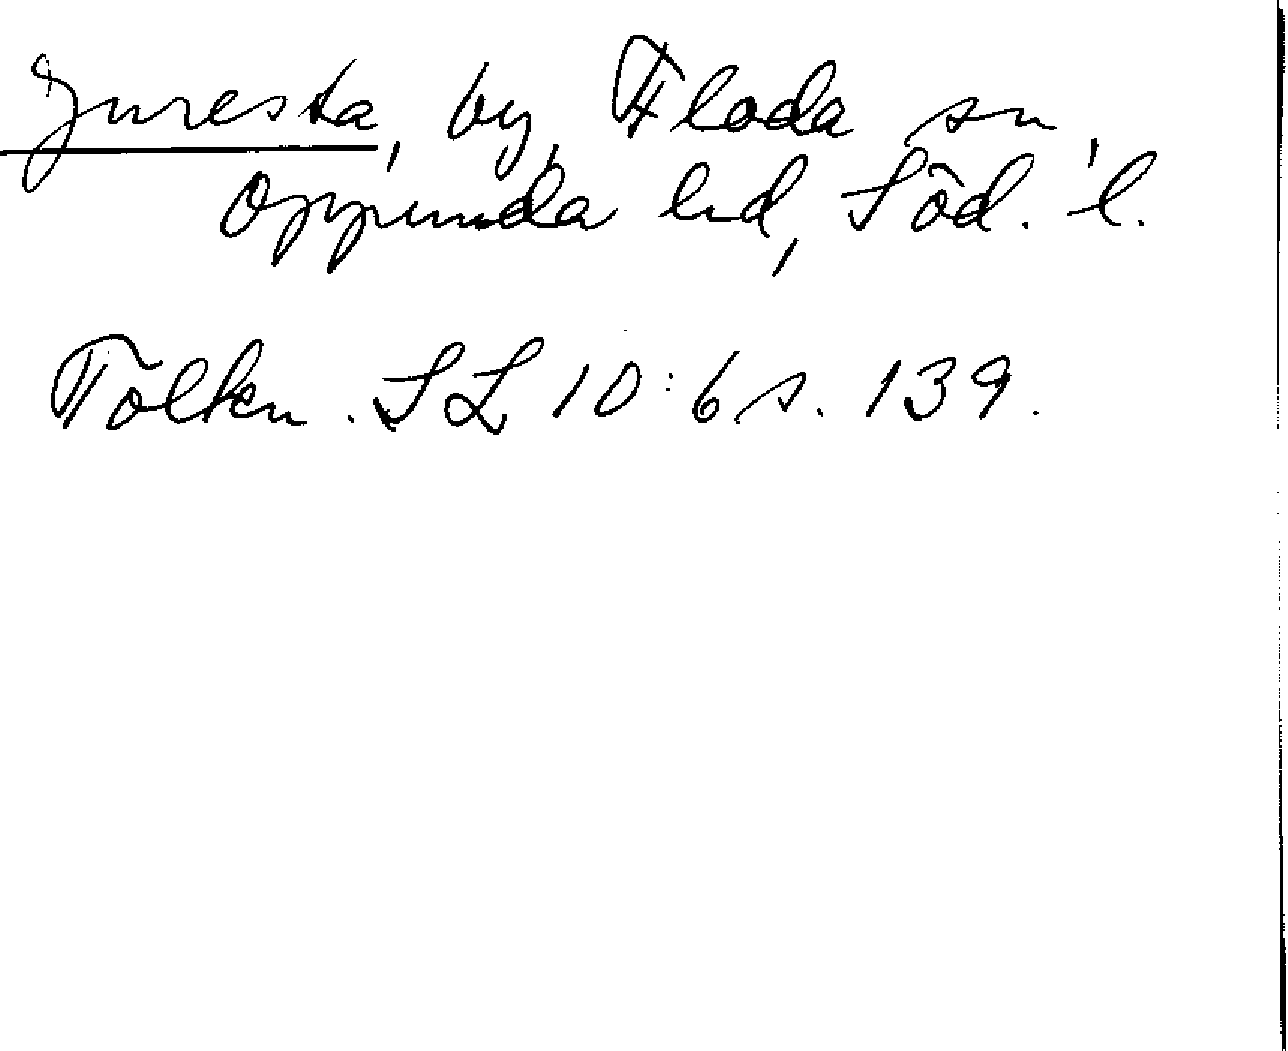 Juresta, by, Floda sn,
Oppunda hd, Söd. l.
Tolkn. SL 10:6 s. 139.